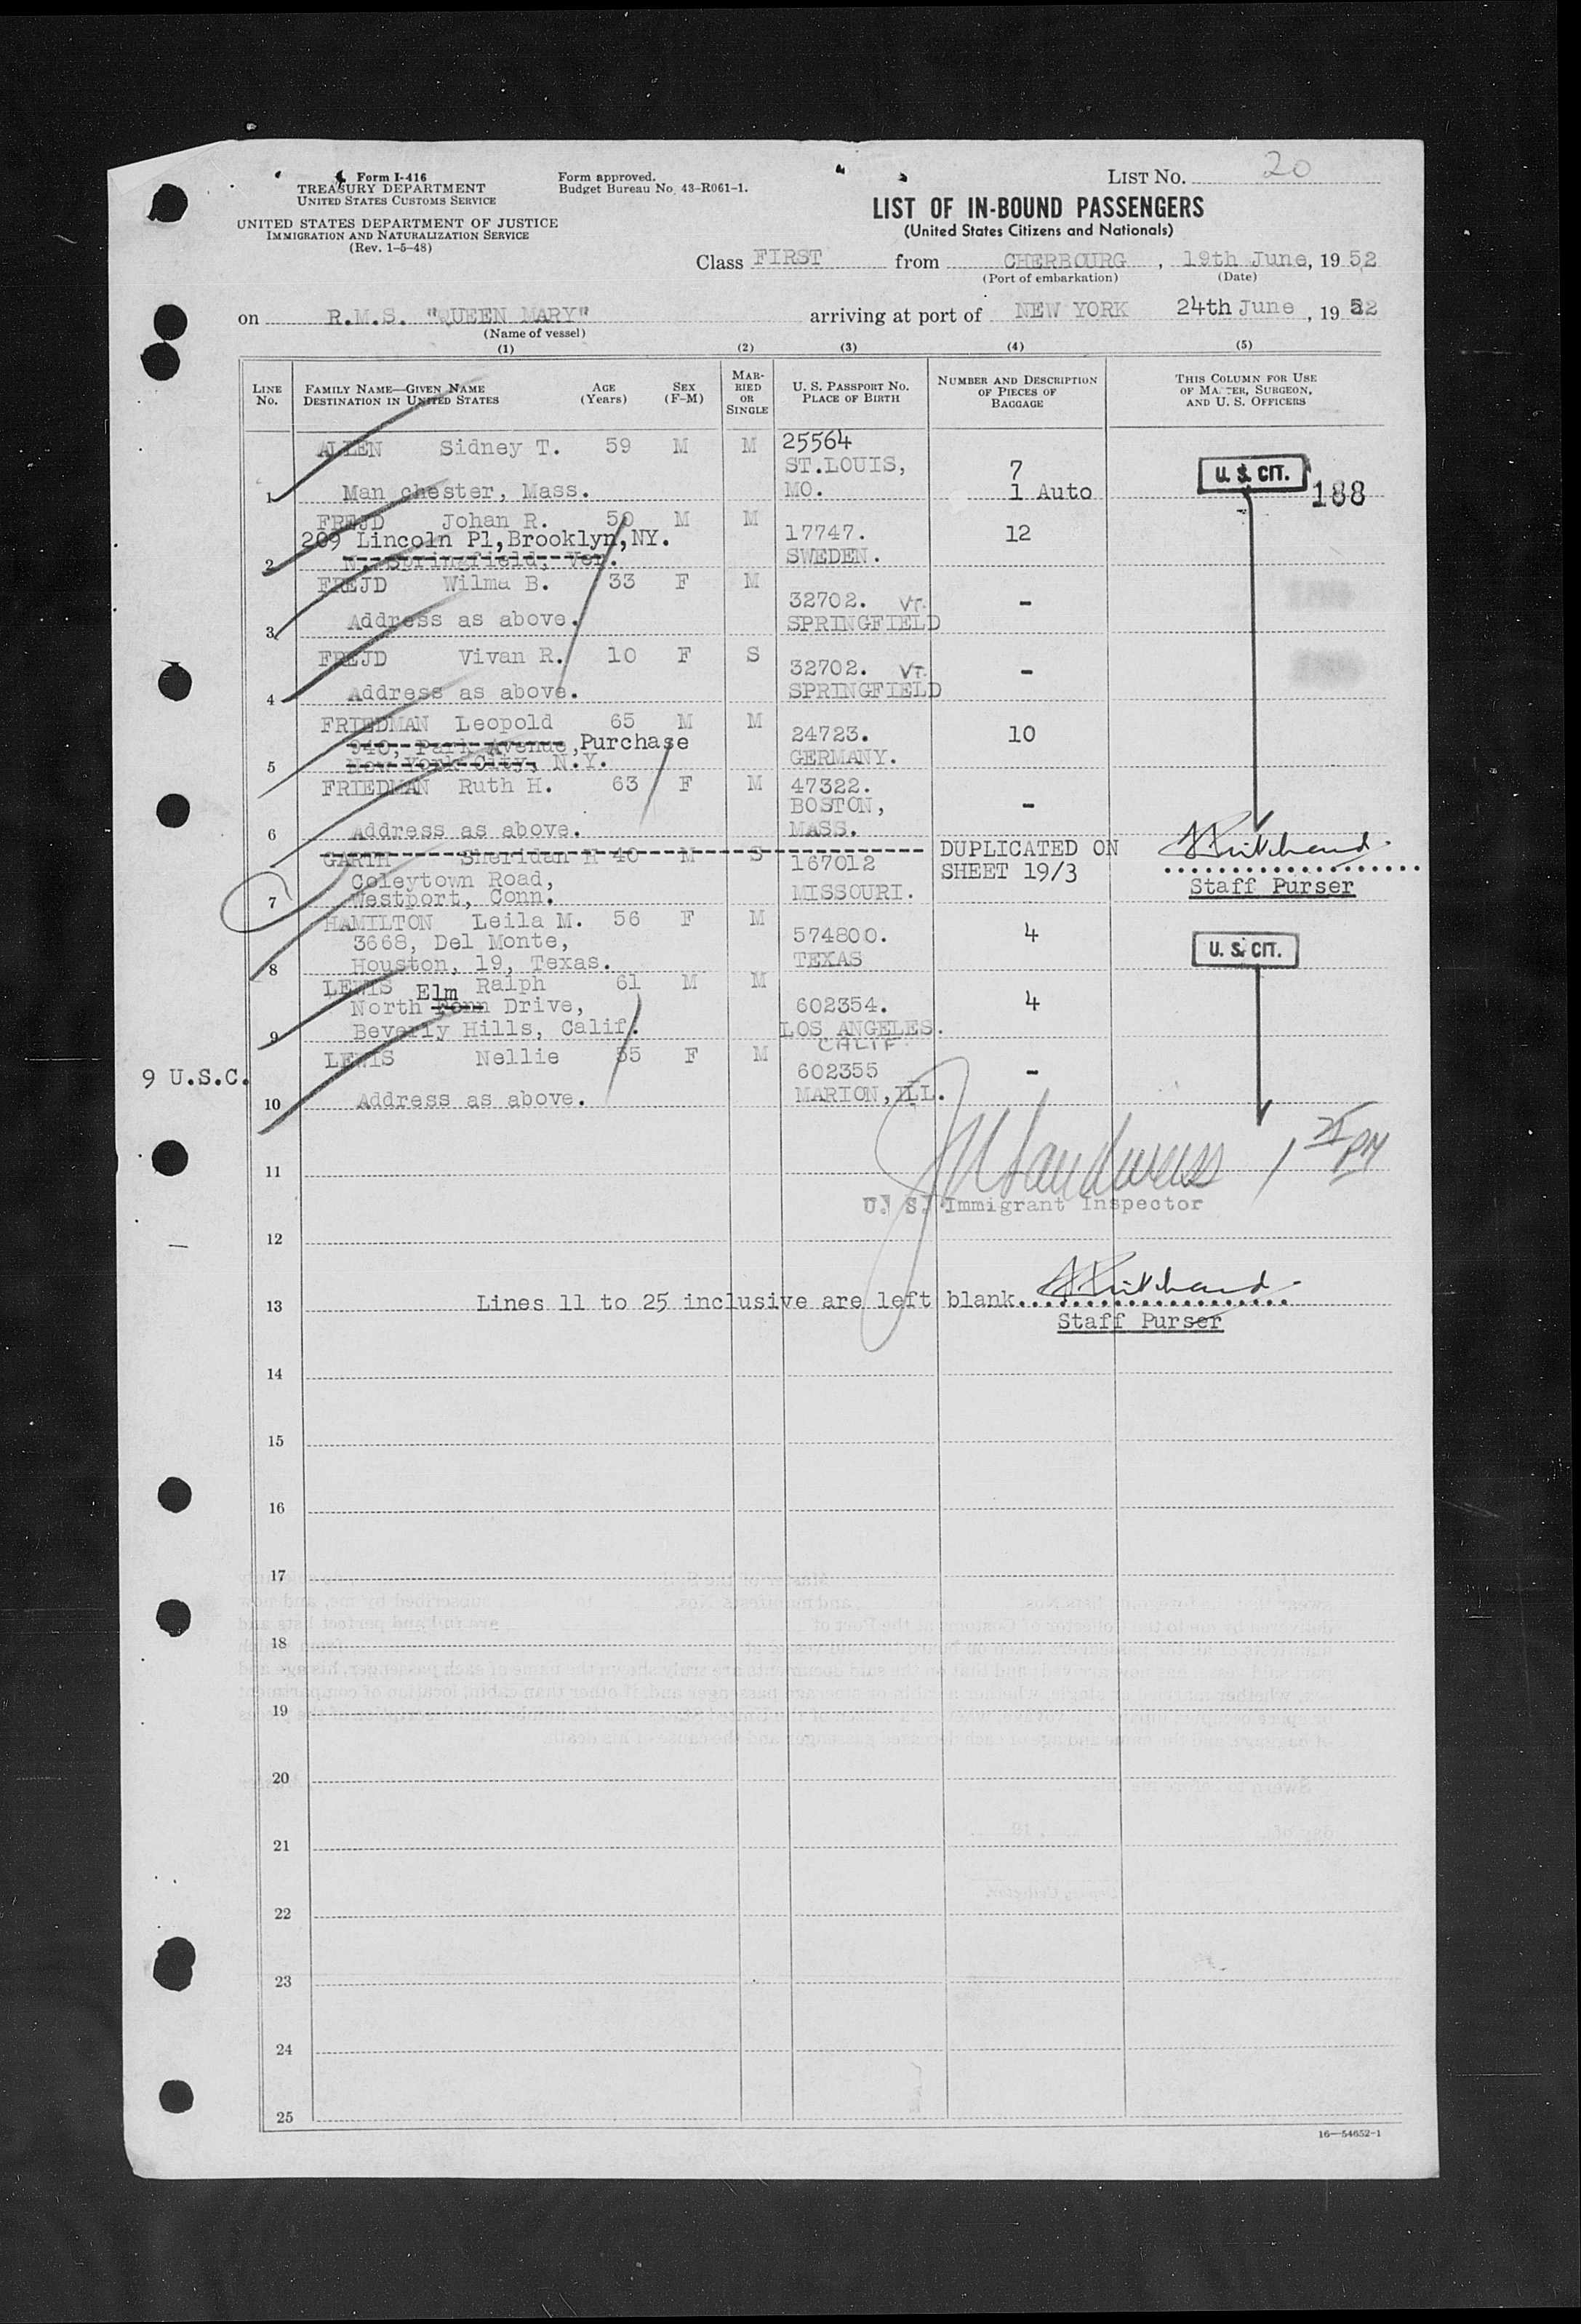 Form I-416
TREASURY DEPARTMENT
UNITED STATES CUSTOMS SERVICE
UNITED STATES DEPARTMENT OF JUSTICE
IMMIGRATION AND NATURALIZATION SERVICE
(Rev. 1-5-48)
Form approved.
Budget Bureau No. 43-R061-1.
LIST No. 20
LIST OF IN-BOUND PASSENGERS
(United States Citizens and Nationals)
Class FIRST from CHERBOURG, 19th June, 1952
(Port of embarkation) (Date)
on R.M.S. "QUEEN MARY" arriving at port of NEW YORK 24th June, 1952
(Name of vessel)
(1) (2) (3) (4) (5)
LINE No. FAMILY NAME—GIVEN NAME DESTINATION IN UNITED STATES AGE (Years) SEX (F-M) MARRIED OR SINGLE U. S. PASSPORT No. PLACE OF BIRTH NUMBER AND DESCRIPTION OF PIECES OF BAGGAGE THIS COLUMN FOR USE OF MASTER, SURGEON, AND U. S. OFFICERS
ALLEN Sidney T. 59 M M 25564
ST.LOUIS, 7 U. S. CIT. 188
1 Man chester, Mass. MO. 1 Auto
FREJD Johan R. 50 M M
209 Lincoln Pl,Brooklyn,NY. 17747. 12
2 N. Springfield, Ver. SWEDEN.
FREJD Wilma B. 33 F M
32702. VT. -
3 Address as above. SPRINGFIELD
FREJD Vivan R. 10 F S
32702. VT. -
4 Address as above. SPRINGFIELD
FRIEDMAN Leopold 65 M M
940, Park Avenue,Purchase 24723. 10
5 New York City, N.Y. GERMANY.
FRIEDMAN Ruth H. 63 F M 47322.
BOSTON, -
6 Address as above. MASS.
GARTH Sheridan H 40 M S 167012 DUPLICATED ON
Coleytown Road, SHEET 19/3
7 Westport, Conn. MISSOURI. Staff Purser
HAMILTON Leila M. 56 F M
3668, Del Monte, 574800. 4 U. S. CIT.
8 Houston, 19, Texas. TEXAS
LEWIS Ralph 61 M M
Elm
North Fonn Drive, 602354. 4
9 Beverly Hills, Calif. LOS ANGELES.
CALIF
LEWIS Nellie 55 F M
9 U.S.C. 602355 -
10 Address as above. MARION,ILL.
1 25 PM
11
U. S. Immigrant Inspector
12
13 Lines 11 to 25 inclusive are left blank.
Staff Purser
14
15
16
17
18
19
20
21
22
23
24
25
16—54652-1